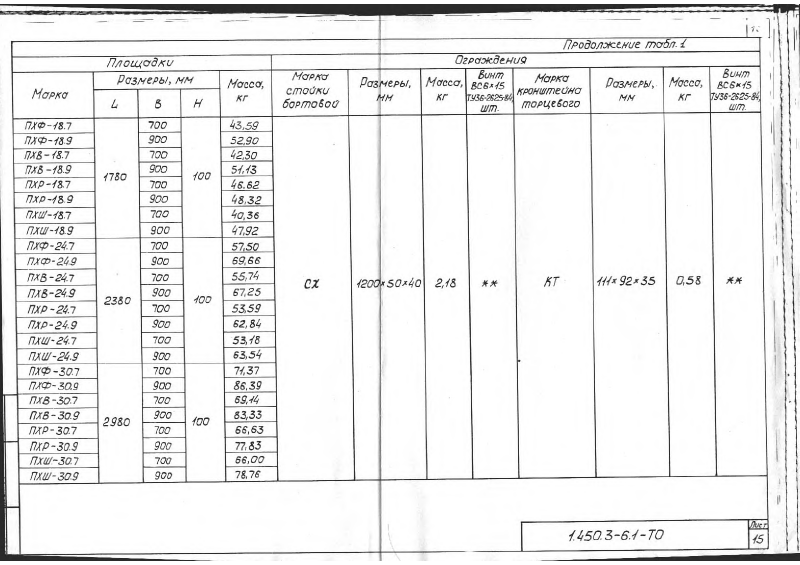 Продолжение табл. 1
Площадки Ограждения
Марка Размеры, мм Масса, кг Марка стойки бортовой Размеры, мм Масса, кг Винт ВС6×15 ТУ36-2625-84, шт. Марка кронштейна торцевого Размеры, мм Масса, кг Винт ВС6×15 ТУ36-2625-84, шт.
L В Н
ПХФ-18.7 1780 700 100 43,59 СХ 1200×50×40 2,18 ** КТ 111×92×35 0,58 **
ПХФ-18.9 900 52,90
ПХВ-18.7 700 42,30
ПХВ-18.9 900 51,13
ПХР-18.7 700 46,62
ПХР-18.9 900 48,32
ПХШ-18.7 700 40,36
ПХШ-18.9 900 47,92
ПХФ-24.7 2380 700 100 57,50
ПХФ-24.9 900 69,66
ПХВ-24.7 700 55,74
ПХВ-24.9 900 67,25
ПХР-24.7 700 53,59
ПХР-24.9 900 62,84
ПХШ-24.7 700 53,18
ПХШ-24.9 900 63,54
ПХФ-30.7 2980 700 100 71,37
ПХФ-30.9 900 86,39
ПХВ-30.7 700 69,14
ПХВ-30.9 900 83,33
ПХР-30.7 700 66,63
ПХР-30.9 900 77,83
ПХШ-30.7 700 66,00
ПХШ-30.9 900 78,76
1.450.3-6.1-ТО
Лист
15